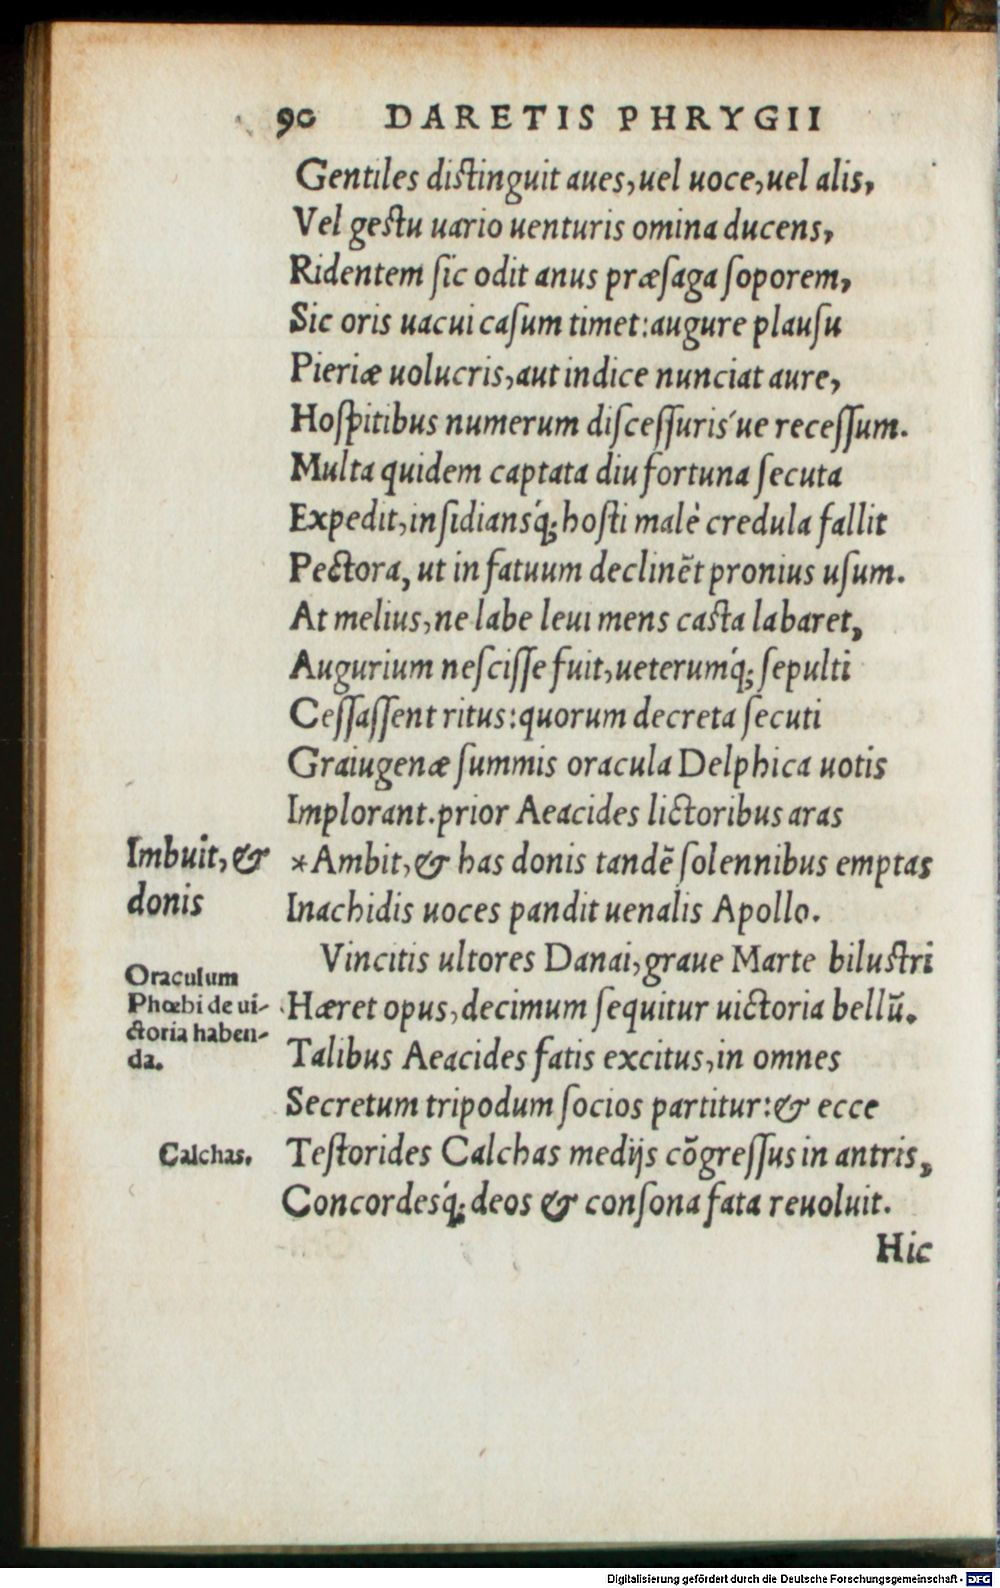 90 DARETIS PHRYGII
Gentiles diſtinguit aues, uel uoce, uel alis,
Vel geſtu uario uenturis omina ducens,
Ridentem ſic odit anus præſaga ſoporem,
Sic oris uacui caſum timet: augure plauſu
Pieriæ uolucris, aut indice nunciat aure,
Hoſpitibus numerum diſceſſuris´ue receſſum.
Multa quidem captata diu fortuna ſecuta
Expedit, inſidiansq́; hoſti malè credula fallit
Pectora, ut in fatuum declinēt pronius uſum.
At melius, ne labe leui mens caſta labaret,
Augurium neſciſſe fuit, ueterumq́; ſepulti
Ceſſaſſent ritus: quorum decreta ſecuti
Graiugenæ ſummis oracula Delphica uotis
Implorant. prior Aeacides lictoribus aras
Imbuit, &
donis
*Ambit, & has donis tandē ſolennibus emptas
Inachidis uoces pandit uenalis Apollo.
Vincitis ultores Danai, graue Marte biluſtri
Oraculum
Phœbi de ui-
ctoria haben-
da.
Hæret opus, decimum ſequitur uictoria bellū.
Talibus Aeacides fatis excitus, in omnes
Secretum tripodum ſocios partitur: & ecce
Calchas.
Teſtorides Calchas medijs cōgreſſus in antris,
Concordesq́; deos & conſona fata reuoluit.
Hic
Digitalisierung gefördert durch die Deutsche Forschungsgemeinschaft - DFG